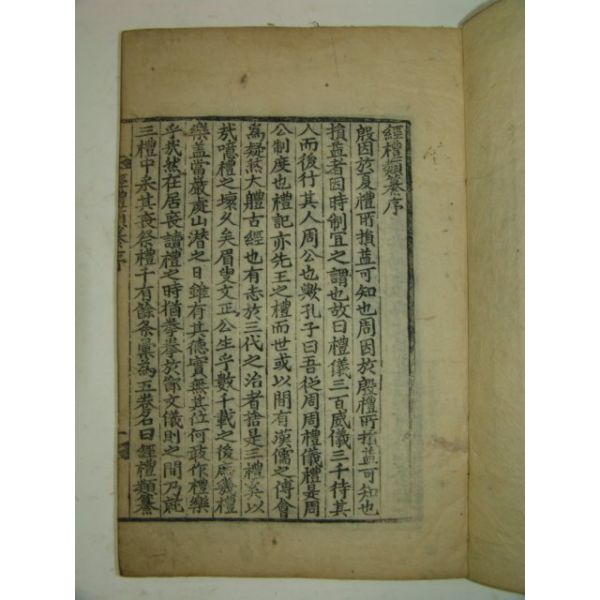 經禮類纂序
殷因於夏禮所損益可知也周因於殷禮所損益可知也
損益者因時制宜之謂也故曰禮儀三百威儀三千待其
人而後行其人周公也歟孔子曰吾從周周禮儀禮是周
公制度也禮記亦先王之禮而世或以間有漢儒之傅會
爲疑然大體古經也有志於三代之治者捨是三禮奚以
㢤噫禮之壞久矣眉叟文正公生乎數千載之後庶幾禮
樂盖當嚴處山潜之日雖有其德實無其位何敢作禮樂
乎㢤然在居喪讀禮之時猶拳拳於節文儀則之間乃就
三禮中采其喪祭禮千有餘条彙爲五卷名曰經禮類纂
經禮類纂序
一